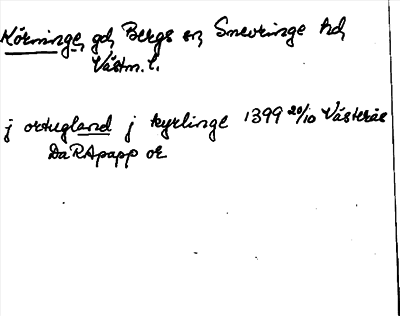 Körninge, gd, Bergs sn, Snevringe hd,
Västm. l.
j ortugland j kyrlinge 1399 20/10 Västerås
DaRApapp or